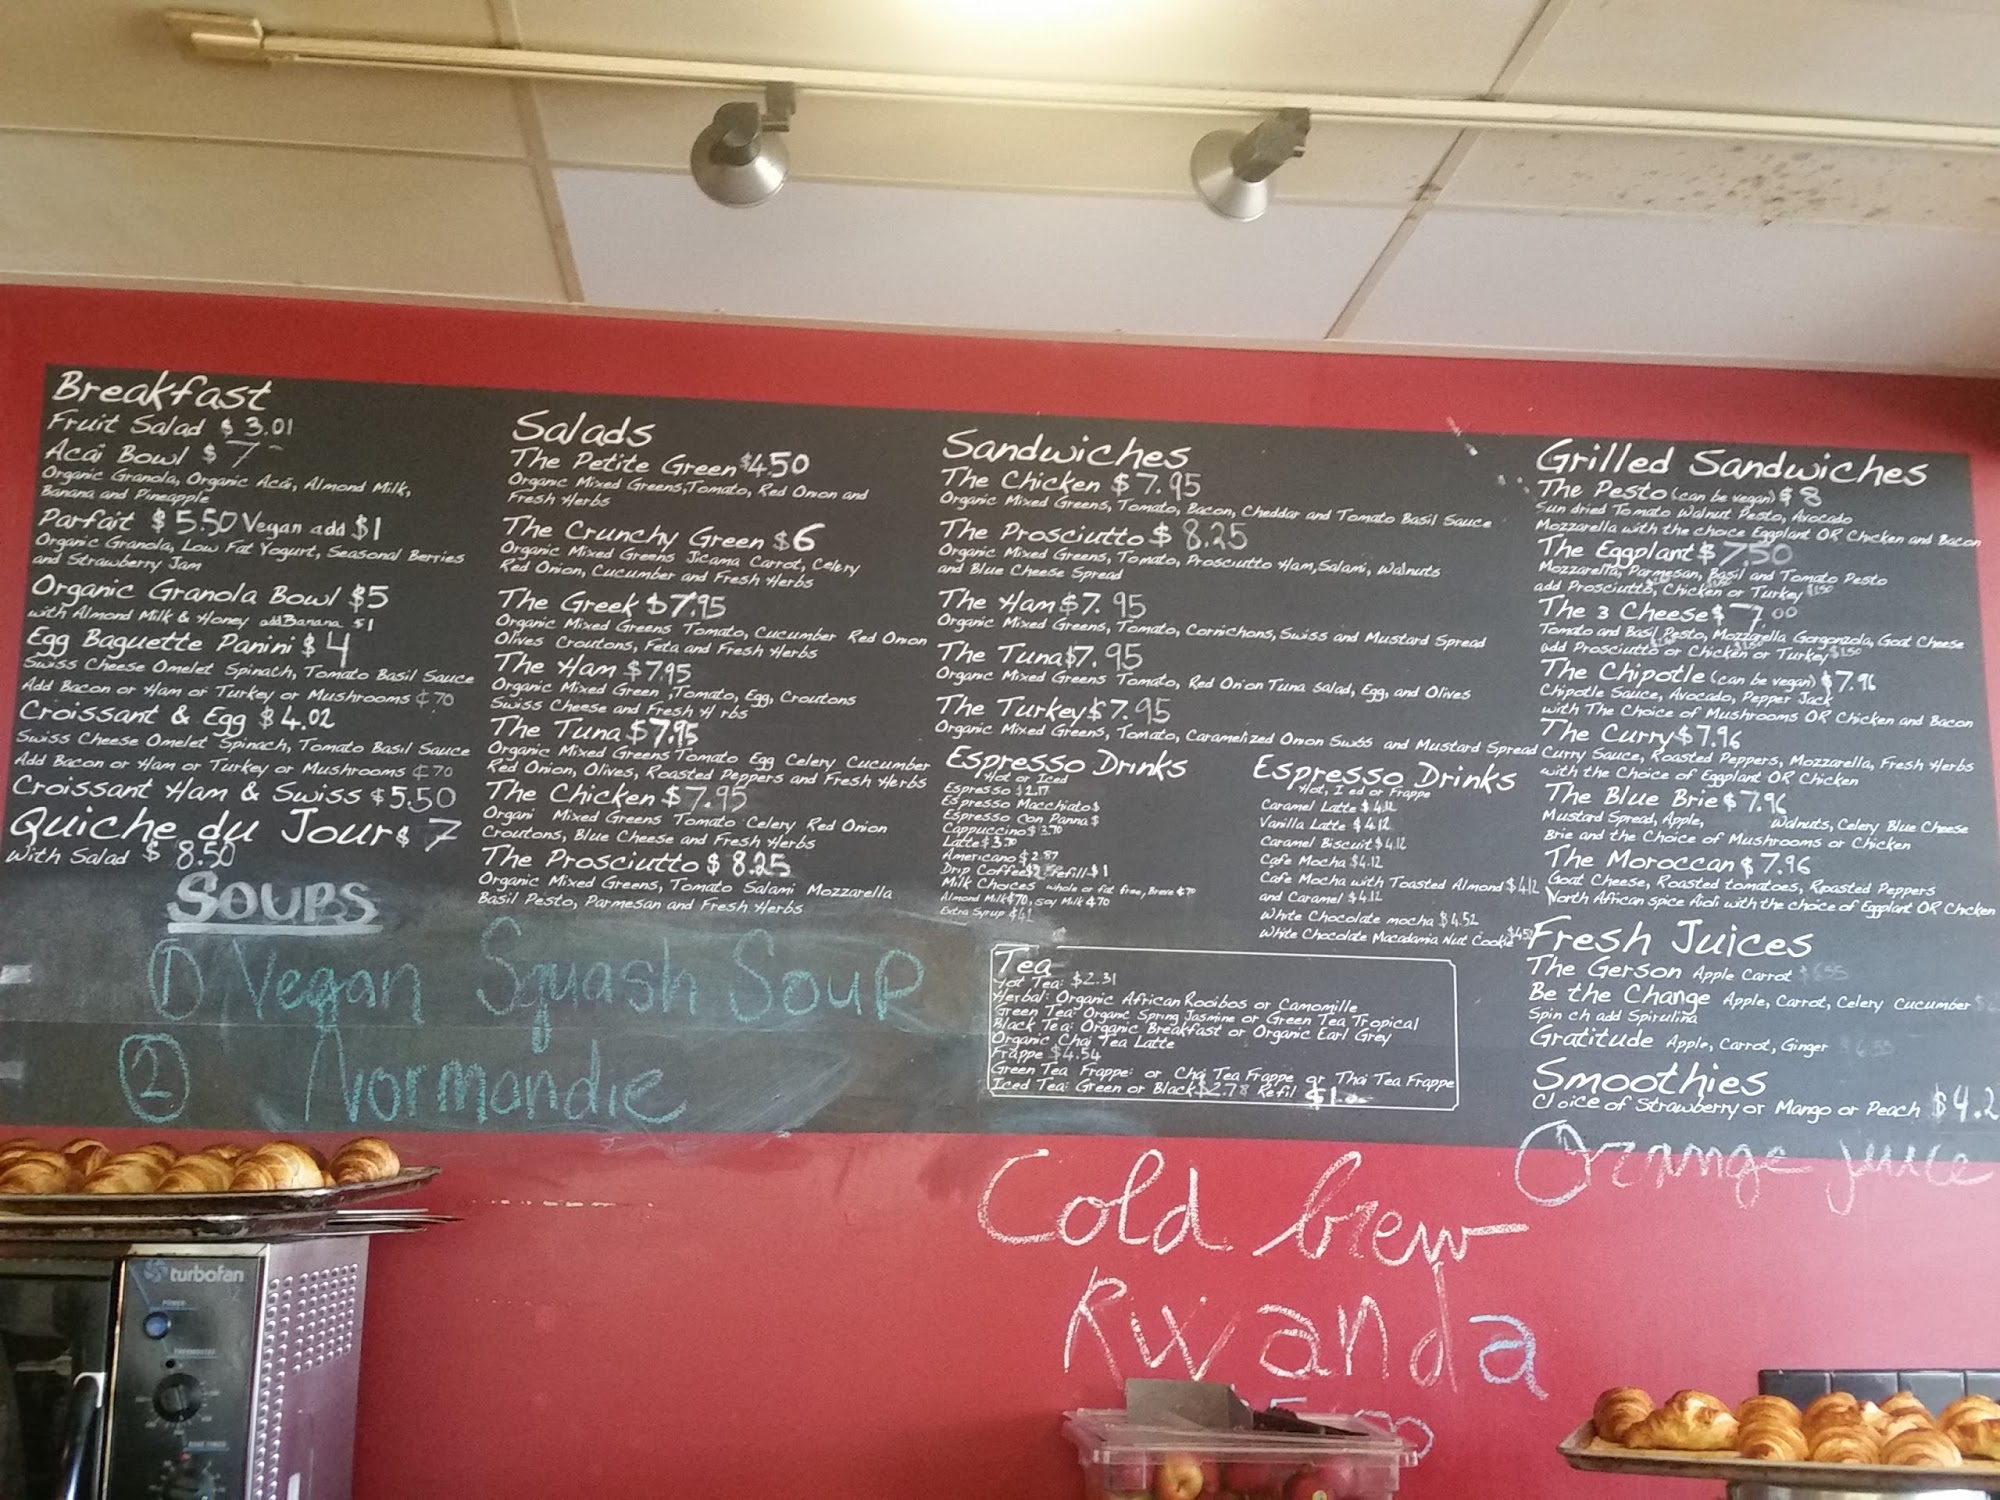 Breakfast
Fruit Salad $ 3.01
Acai Bowl $ 7-
Organic Granola, Organic Acai, Almond Milk,
Banana and Pineapple
Parfait $ 5.50 Vegan add $1
Organic Granola, Low Fat Yogurt, Seasonal Berries
and Strawberry Jam
Organic Granola Bowl $5
with Almond Milk & Honey add Banana $1
Egg Baguette Panini $ 4
Swiss Cheese Omelet Spinach, Tomato Basil Sauce
Add Bacon or Ham or Turkey or Mushrooms ¢70
Croissant & Egg $ 4.02
Swiss Cheese Omelet Spinach, Tomato Basil Sauce
Add Bacon or Ham or Turkey or Mushrooms ¢70
Croissant Ham & Swiss $5.50
Quiche du Jour $ 7
With Salad $ 8.50
SOUPS
① Vegan Squash Soup
② Normandie
Salads
The Petite Green $4.50
Organic Mixed Greens, Tomato, Red Onion and
Fresh Herbs
The Crunchy Green $6
Organic Mixed Greens Jicama Carrot, Celery
Red Onion, Cucumber and Fresh Herbs
The Greek $7.95
Organic Mixed Greens Tomato, Cucumber Red Onion
Olives Croutons, Feta and Fresh Herbs
The Ham $7.95
Organic Mixed Green ,Tomato, Egg, Croutons
Swiss Cheese and Fresh H rbs
The Tuna $7.95
Organic Mixed Greens Tomato Egg Celery Cucumber
Red Onion, Olives, Roasted Peppers and Fresh Herbs
The Chicken $7.95
Organi Mixed Greens Tomato Celery Red Onion
Croutons, Blue Cheese and Fresh Herbs
The Prosciutto $ 8.25
Organic Mixed Greens, Tomato Salami Mozzarella
Basil Pesto, Parmesan and Fresh Herbs
Sandwiches
The Chicken $ 7.95
Organic Mixed Greens, Tomato, Bacon, Cheddar and Tomato Basil Sauce
The Prosciutto $ 8.25
Organic Mixed Greens, Tomato, Prosciutto Ham, Salami, Walnuts
and Blue Cheese Spread
The Ham $7.95
Organic Mixed Greens, Tomato, Cornichons, Swiss and Mustard Spread
The Tuna $7.95
Organic Mixed Greens Tomato, Red Onion Tuna Salad, Egg, and Olives
The Turkey $7.95
Organic Mixed Greens, Tomato, Caramelized Onion Swiss and Mustard Spread
Espresso Drinks
Hot or Iced
Espresso $2.17
Espresso Macchiato $
Espresso Con Panna $
Cappuccino $ 3.70
Latte $ 3.70
Americano $ 2.87
Drip Coffee Refill $1
Milk Choices whole or fat free, Breve ¢70
Almond Milk ¢70, Soy Milk ¢70
Extra Syrup
Espresso Drinks
Hot, I ed or Frappe
Caramel Latte $ 4.12
Vanilla Latte $ 4.12
Caramel Biscuit $4.12
Cafe Mocha $4.12
Cafe Mocha with Toasted Almond $4.12
and Caramel $ 4.12
White Chocolate mocha $ 4.52
White Chocolate Macadamia Nut Cookie $4.52
Tea
Hot Tea: $2.31
Herbal: Organic African Rooibos or Camomille
Green Tea: Organic Spring Jasmine or Green Tea Tropical
Black Tea: Organic Breakfast or Organic Earl Grey
Organic Chai Tea Latte
Frappe $4.54
Green Tea Frappe: or Chai Tea Frappe or Thai Tea Frappe
Iced Tea: Green or Black $2.78 Refil $1.00
Grilled Sandwiches
The Pesto (can be vegan) $ 8
Sun dried Tomato Walnut Pesto, Avocado
Mozzarella with the choice Eggplant OR Chicken and Bacon
The Eggplant $7.50
Mozzarella, Parmesan, Basil and Tomato Pesto
add Prosciutto, Chicken or Turkey $1.50
The 3 Cheese $ 7.00
Tomato and Basil Pesto, Mozzarella Gorgonzola, Goat Cheese
add Prosciutto or Chicken or Turkey $1.50
The Chipotle (can be vegan) $7.96
Chipotle Sauce, Avocado, Pepper Jack
with The Choice of Mushrooms OR Chicken and Bacon
The Curry $7.96
Curry Sauce, Roasted Peppers, Mozzarella, Fresh Herbs
with the Choice of Eggplant OR Chicken
The Blue Brie $7.96
Mustard Spread, Apple, Walnuts, Celery Blue Cheese
Brie and the Choice of Mushrooms or Chicken
The Moroccan $ 7.96
Goat Cheese, Roasted tomatoes, Roasted Peppers
North African spice Aioli with the choice of Eggplant OR Chicken
Fresh Juices
The Gerson Apple Carrot
Be the Change Apple, Carrot, Celery Cucumber
Spin ch add Spirulina
Gratitude Apple, Carrot, Ginger
Smoothies
Choice of Strawberry or Mango or Peach $4.2
Orange juice
Cold brew
Rwanda
turbofan
POWER
THERMOSTAT